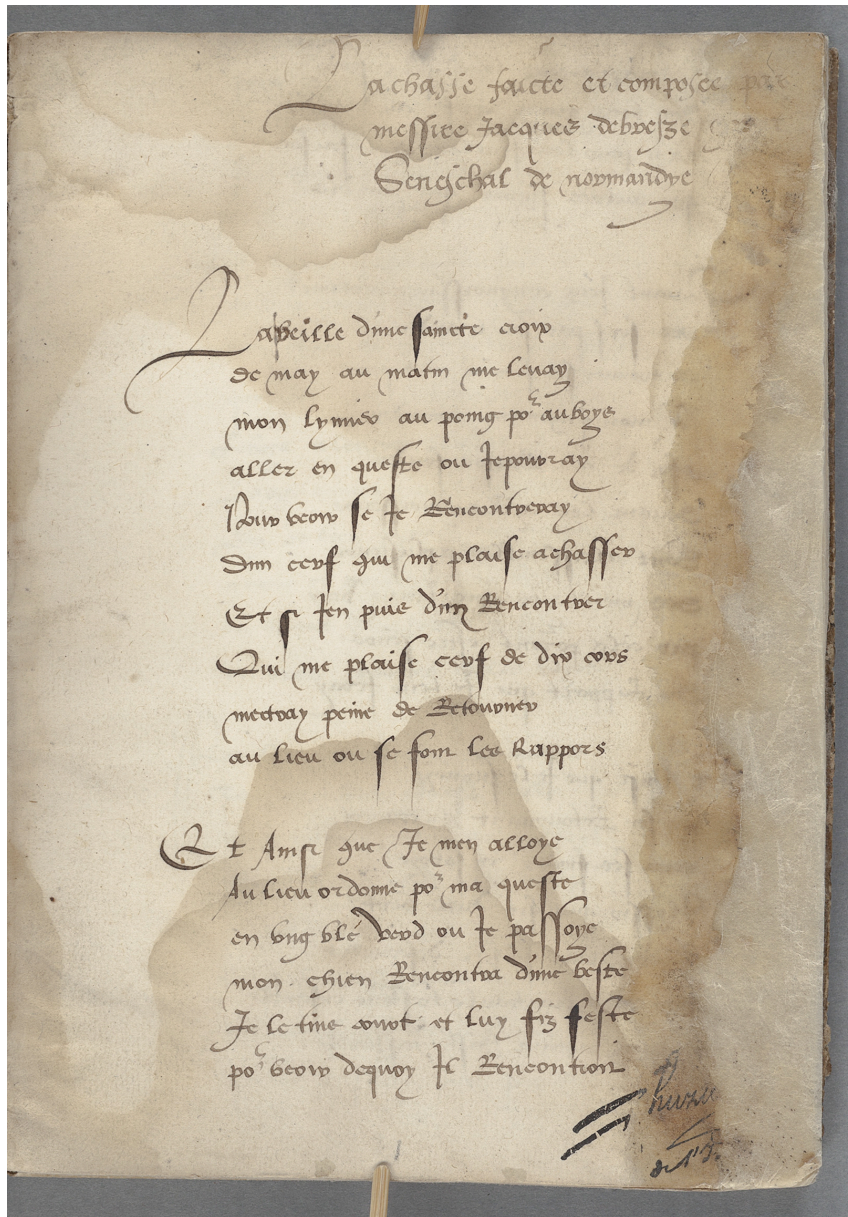 La chasse faicte et composee par
messire Jacques debresze
Seneschal de normandye
La veille d'une saincte croix
de may au matin me levay
mon lymier au poing po^r au boys
aller en queste ou Je pourray
Pour veoir se Je Rencontreray
dun cerf qui me plaise a chasser
Et si Jen puis dun Rencontrer
Qui me plaise cerf de dix cors
mectray peine de Retourner
au lieu ou se font les Rappors
Et Ainsi que Je men alloye
Au lieu ordonne po^r ma queste
en ung blé verd ou Je passoye
mon chien Rencontra d'une beste
Je le tins court et luy fiz feste
po^r veoir dequoy Il Rencontroit